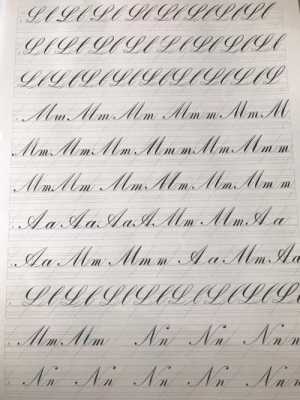 Ll Ll Ll Ll Ll Ll Ll Ll
Ll Ll Ll Ll Ll Ll Ll Ll
Ll Ll Ll Ll Ll Ll Ll Ll Ll
Mm Mm Mm Mm m Mm M
Mm Mm Mm Mm m Mm Mm m
Mm Mm Mm Mm Mm Mm m
Aa Aa Aa A Mm Mm Aa
Aa Mm Mm m Aa Mm Aa
Ll Ll Ll Ll Ll Ll Ll Ll L
Mm Mm Nn Nn Nn n
Nn Nn Nn Nn Nn n